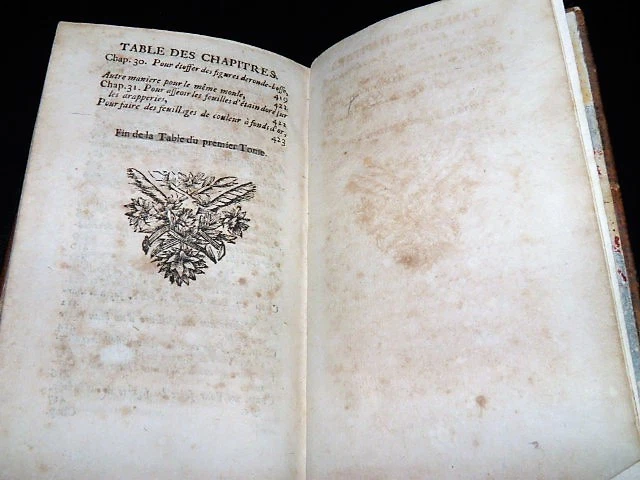 TABLE DES CHAPITRES.
Chap. 30. Pour étoffer des figures de ronde-bosse,
419
Autre maniere pour le même moule, 421
Chap. 31. Pour asseoir les feuilles d'étain doré sur
les drapperies, 422
Pour faire des feuillages de couleur à fonds d'or,
423
Fin de la Table du premier Tome.